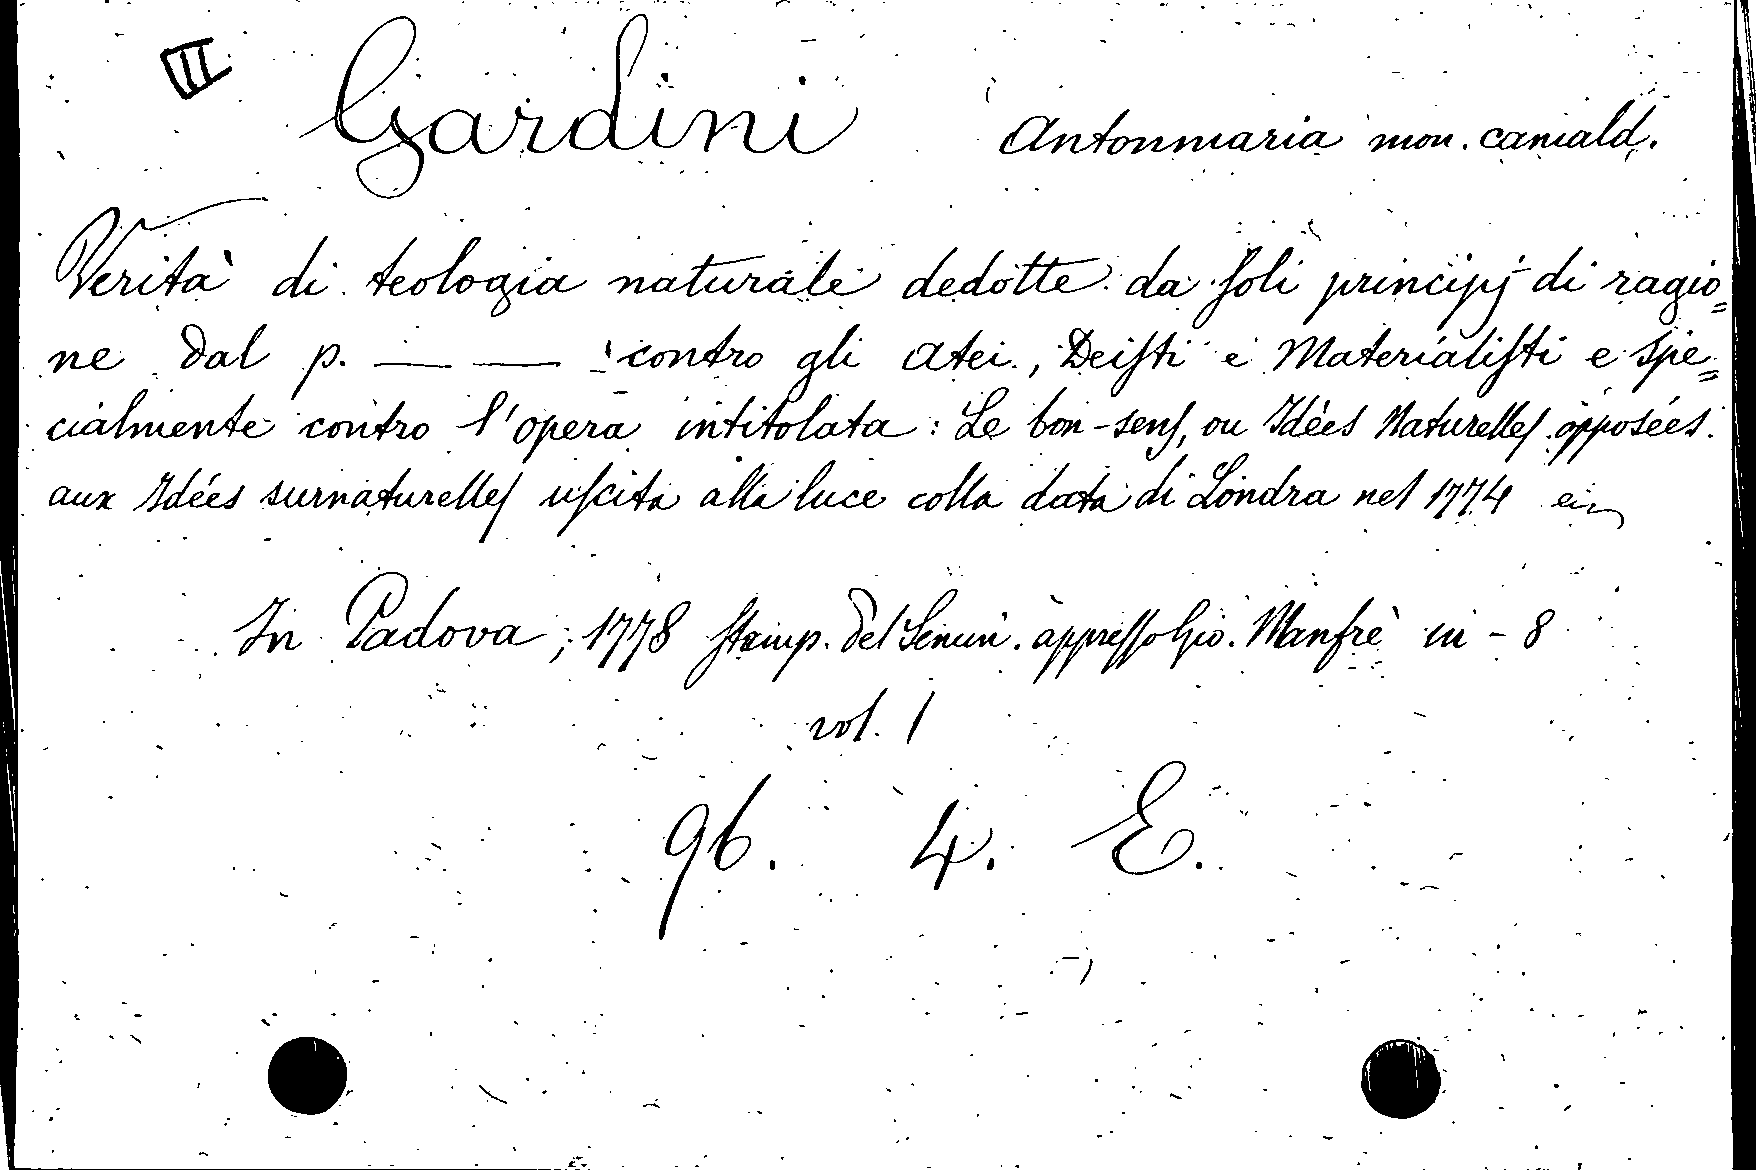 III
Gardini Antonmaria mon. camald.
Verità di teologia naturale dedotte da soli principj di ragio=
ne dal p. — — contro gli Atei, Deisti e Materialisti e spe=
cialmente contro l'opera intitolata: Le bon-sens, ou Idèes Naturelles opposées
aux Idées surnaturelles uscita alla luce colla data di Londra nel 1774
In Padova; 1778 stamp. del Semin. appresso Gio. Manfrè in-8
vol. 1
96. 4. E.